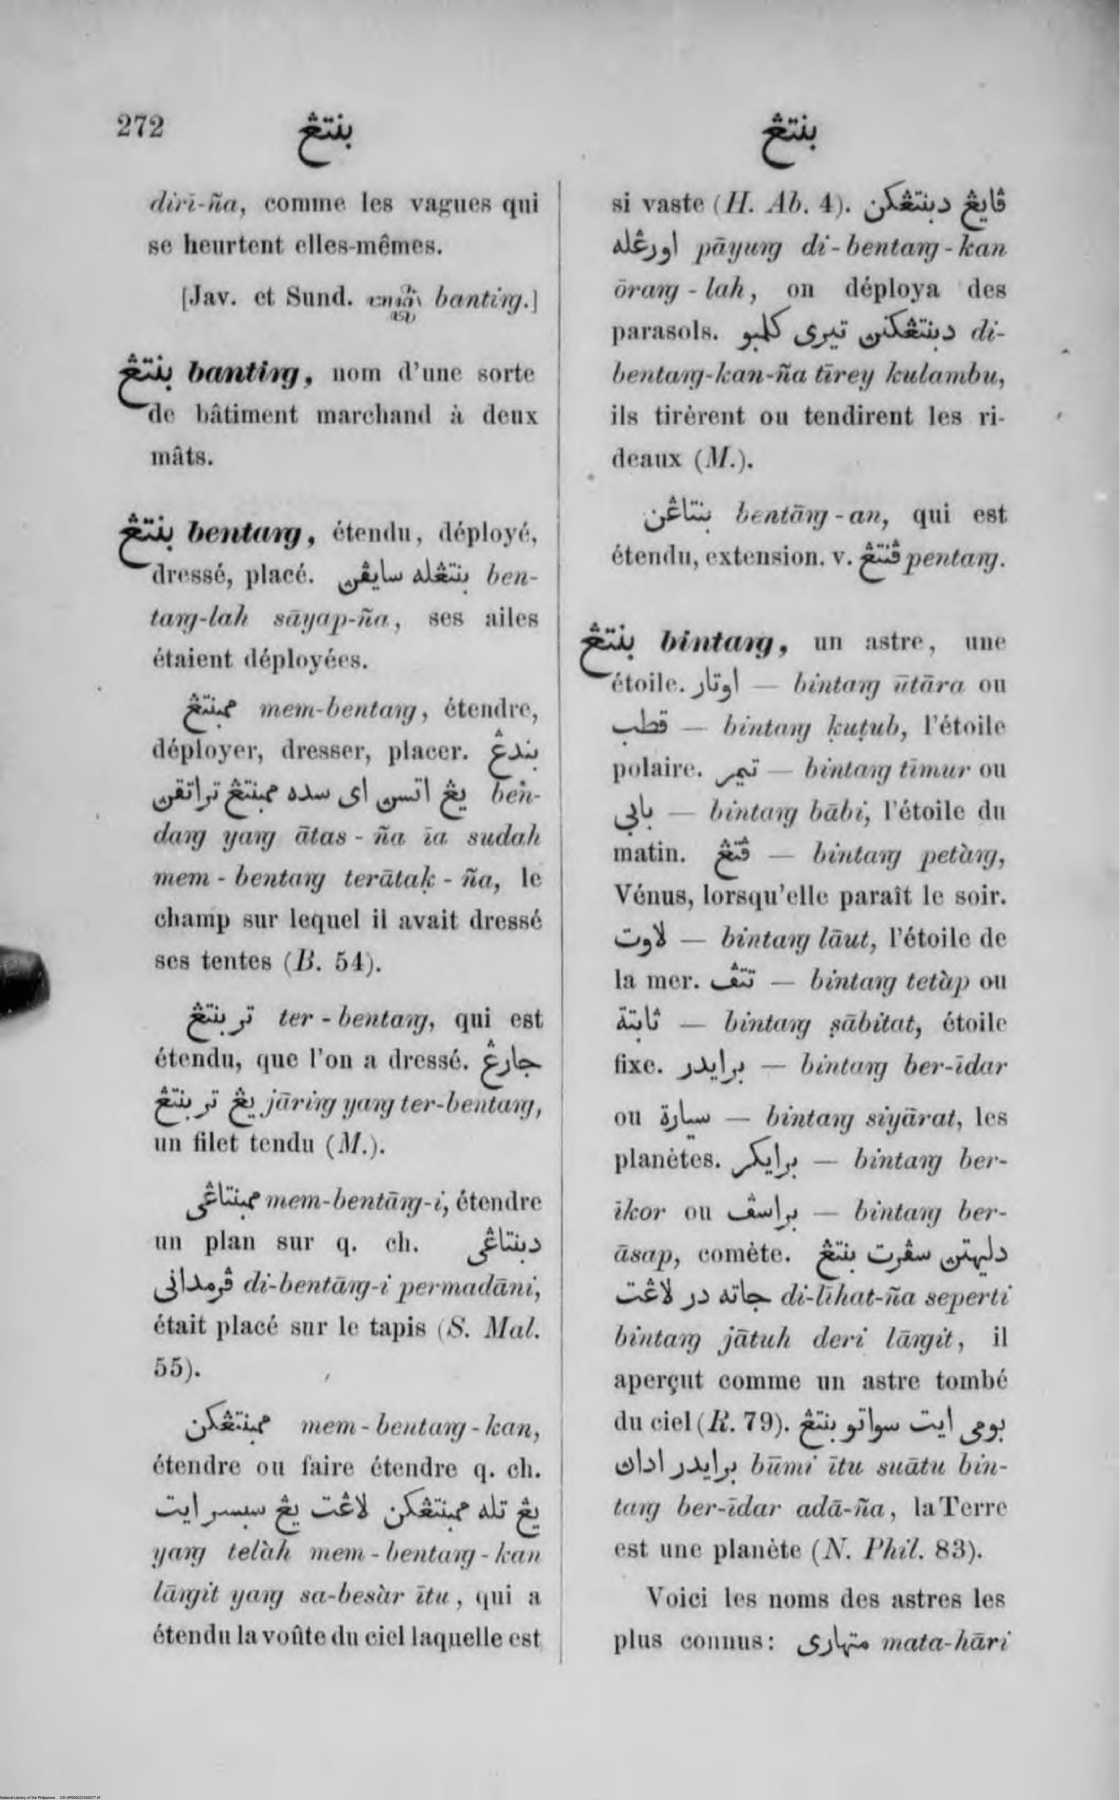 272
بنتڠ
بنتڠ
diri-ña, comme les vagues qui
se heurtent elles-mêmes.
[Jav. et Sund. banting.]
بنتڠ banting, nom d'une sorte
de bâtiment marchand à deux
mâts.
بنتڠ bentang, étendu, déployé,
dressé, placé. بنتڠله سايڤن ben-
tang-lah sāyap-ña, ses ailes
étaient déployées.
ممبنتڠ mem-bentang, étendre,
déployer, dresser, placer. بندڠ
يڠ اتسن اى سده ممبنتڠ تراتقن ben-
dang yang ātas-ña īa sudah
mem-bentang terātaḳ-ña, le
champ sur lequel il avait dressé
ses tentes (B. 54).
تربنتڠ ter-bentang, qui est
étendu, que l'on a dressé. جارڠ
يڠ تربنتڠ jāring yang ter-bentang,
un filet tendu (M.).
ممبنتاڠى mem-bentāng-i, étendre
un plan sur q. ch. دبنتاڠى
ڤرمدانى di-bentāng-i permadāni,
était placé sur le tapis (S. Mal.
55).
ممبنتڠكن mem-bentang-kan,
étendre ou faire étendre q. ch.
يڠ تله ممبنتڠكن لاڠت يڠ سبسر ايت
yang telàh mem-bentang-kan
lāngit yang sa-besàr ītu, qui a
étendu la voûte du ciel laquelle est
si vaste (H. Ab. 4). ڤايڠ دبنتڠكن
اورڠله pāyung di-bentang-kan
ōrang-lah, on déploya des
parasols. دبنتڠكنن تيرى كلمبو di-
bentang-kan-ña tīrey kulambu,
ils tirèrent ou tendirent les ri-
deaux (M.).
بنتاڠن bentāng-an, qui est
étendu, extension. v. ڤنتڠ pentang.
بنتڠ bintang, un astre, une
étoile. اوتار — bintang ūtāra ou
قطب — bintang ḳuṭub, l'étoile
polaire. تيمر — bintang tīmur ou
بابي — bintang bābi, l'étoile du
matin. ڤتڠ — bintang petàng,
Vénus, lorsqu'elle paraît le soir.
لاوت — bintang lāut, l'étoile de
la mer. تتڤ — bintang tetàp ou
ثابتة — bintang ṣābitat, étoile
fixe. برايدر — bintang ber-īdar
ou سيارة — bintang siyārat, les
planètes. برايكر — bintang ber-
īkor ou براسڤ — bintang ber-
āsap, comète. دليهتن سڤرت بنتڠ
جاته در لاڠت di-līhat-ña seperti
bintang jātuh deri lāngit, il
aperçut comme un astre tombé
du ciel (R. 79). بومى ايت سواتو بنتڠ
برايدر ادان būmi ītu suātu bin-
tang ber-īdar adā-ña, la Terre
est une planète (N. Phil. 83).
Voici les noms des astres les
plus connus: متهارى mata-hāri